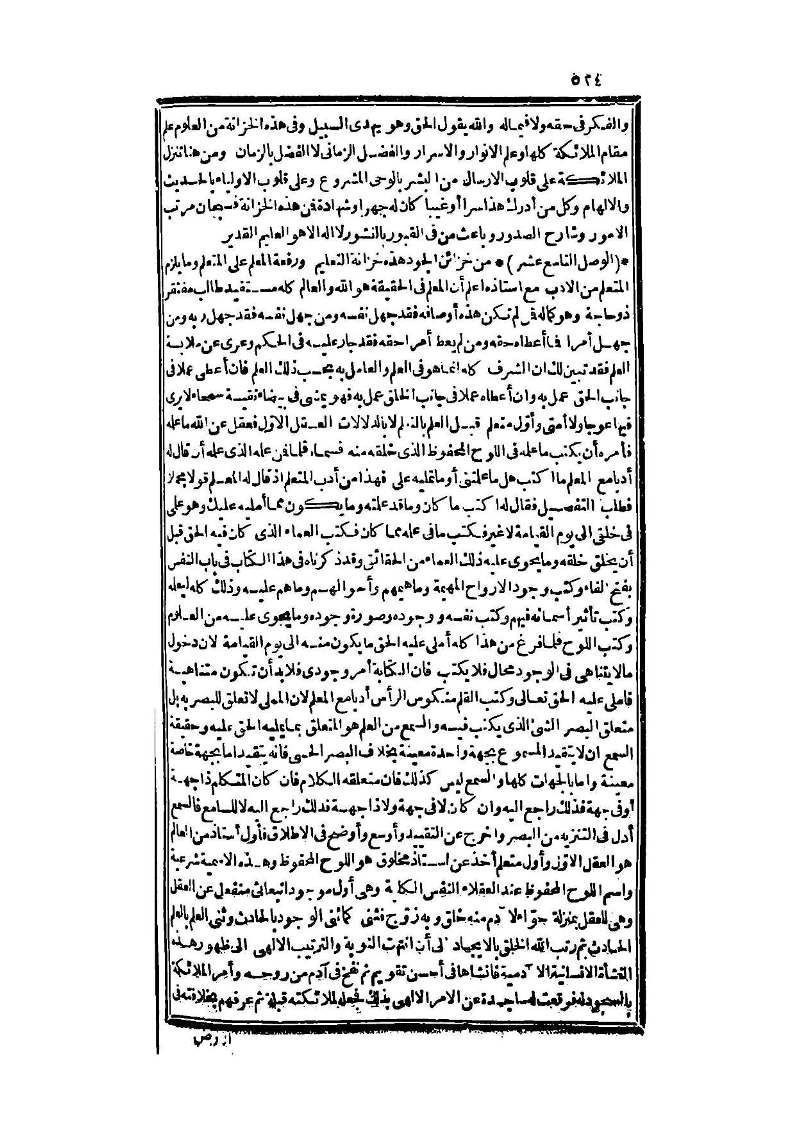 ٥٢٤
والفكر فى حقه ولا فيماله والله يقول الحق وهو يهدى السبيل وفى هذه الخزانة من العلوم علم
مقام الملائكة كلها وعلم الانوار والاسرار والفضل الزمانى لا الفضل بالزمان ومن هنا تنزل
الملائكة على قلوب الارسال من البشر بالوحى المشروع وعلى قلوب الاولياء بالحديث
والالهام وكل من أدرك هذا سرا أوغيبا كان له جهرا وشهادة فن هذه الخزانة فسبحان مرتب
الامور وشارح الصدور وباعث من فى القبور بالنشور لا اله الا هو العليم القدير
*(الوصل التاسع عشر)* من خزائن الجود هذه خزانة التعليم ورفعة المعلم على المتعلم وما يلزم
المتعلم من الادب مع استاذه اعلم أن المعلم فى الحقيقة هو الله والعالم كله مستفيد طالب مفتقر
ذو حاجة وهو كماله فن لم تكن هذه أوصافه فقد جهل نفسه ومن جهل نفسه فقد جهل ربه ومن
جهل أمرا فا أعطاه حقه ومن لم يعط أمرا حقه فقد جار عليه فى الحكم وعرى عن ملابسة
العلم فقد تبين لك ان الشرف كله انما هو فى العلم والعامل به بحسب ذلك العلم فان أعطى عملا فى
جانب الحق عمل به وان أعطاه عملا فى جانب الخلق عمل به فهو يمشى فى بيضاء نقية سمحاء لا يرى
فيها عوجا ولا أمتى وأول متعلم قبل العلم بالتعلم لا بالدلالات العقل الاول فعقل عن الله ما علمه
فأمره أن يكتب ما علمه فى اللوح المحفوظ الذى خلقه منه فسماه قلما فن علمه الذى علمه أن قال له
أدبا مع المعلم ما اكتب هل ما علمتنى أو ما تمليه على فهذا من أدب المتعلم اذ قال له المعلم قولا مجملا
فطلب التفصيل فقال له اكتب ما كان وما قد علمته وما يكون مما أمليه عليك وهو على
فى خلقى الى يوم القيامة لا غير فكتب ما فى علمه مما كان فكتب العماء الذى كان فيه الحق قبل
أن يخلق خلقه وما يحوى عليه ذلك العماء من الحقائق وقد ذكرناه فى هذا الكتاب فى باب النفس
بفتح الفاء وكتب وجود الارواح المهيمة وما هيمهم وأحوالهم وما هم عليه وذلك كله ليعلمه
وكتب تأثير أسمائه فيهم وكتب نفسه ووجوده وصورة وجوده وما يحوى عليه من العلوم
وكتب اللوح فلما فرغ من هذا كله أملى عليه الحق ما يكون منه الى يوم القيامة لان دخول
مالا يتناهى فى الوجود محال فلا يكتب فان الكتابة أمر وجودى فلا بد أن تكون متناهية
فاملى عليه الحق تعالى وكتب القلم منكوس الرأس أدبا مع المعلم لان المملى لا تعلق للبصر به بل
متعلق البصر الشئ الذى يكتب فيه والسمع من العلم هو المتعلق بما يمليه الحق عليه وحقيقة
السمع ان لا يتقيد المسموع بجهة واحدة معينة بخلاف البصر الحسى فانه يتقيد اما بجهة خاصة
معينة واما بالجهات كلها والسمع ليس كذلك فان متعلقه الكلام فان كان المتكلم ذا جهة
أو فى جهة فذلك راجع اليه وان كان لا فى جهة ولا ذا جهة فذلك راجع اليه لا للسامع فالسمع
أدل فى التنزيه من البصر وأخرج عن التقييد وأوسع وأوضح فى الاطلاق فأول أستاذ من العالم
هو العقل الاول وأول متعلم أخذ عن استاذ مخلوق هو اللوح المحفوظ وهذه الاسمية شرعية
واسم اللوح المحفوظ عند العقلاء النفس الكلية وهى أول موجود انبعاثى منفعل عن العقل
وهى للعقل بمنزلة حواء لآدم منه خلق وبه زوج فثنى كما ثنى الوجود بالحادث وثنى العلم بالعلم
الحادث ثم رتب الله الخلق بالايجاد الى أن انتهت النوبة والترتيب الالهى الى ظهور هذه
النشأة الانسانية الآدمية فانشاها فى أحسن تقويم ثم نفخ فى آدم من روحه وأمر الملائكة
بالسجود له فوقعت له ساجدة عن الامر الالهى بذلك فجعله لملائكته قبلة ثم عرفهم بخلافته فى
الارض